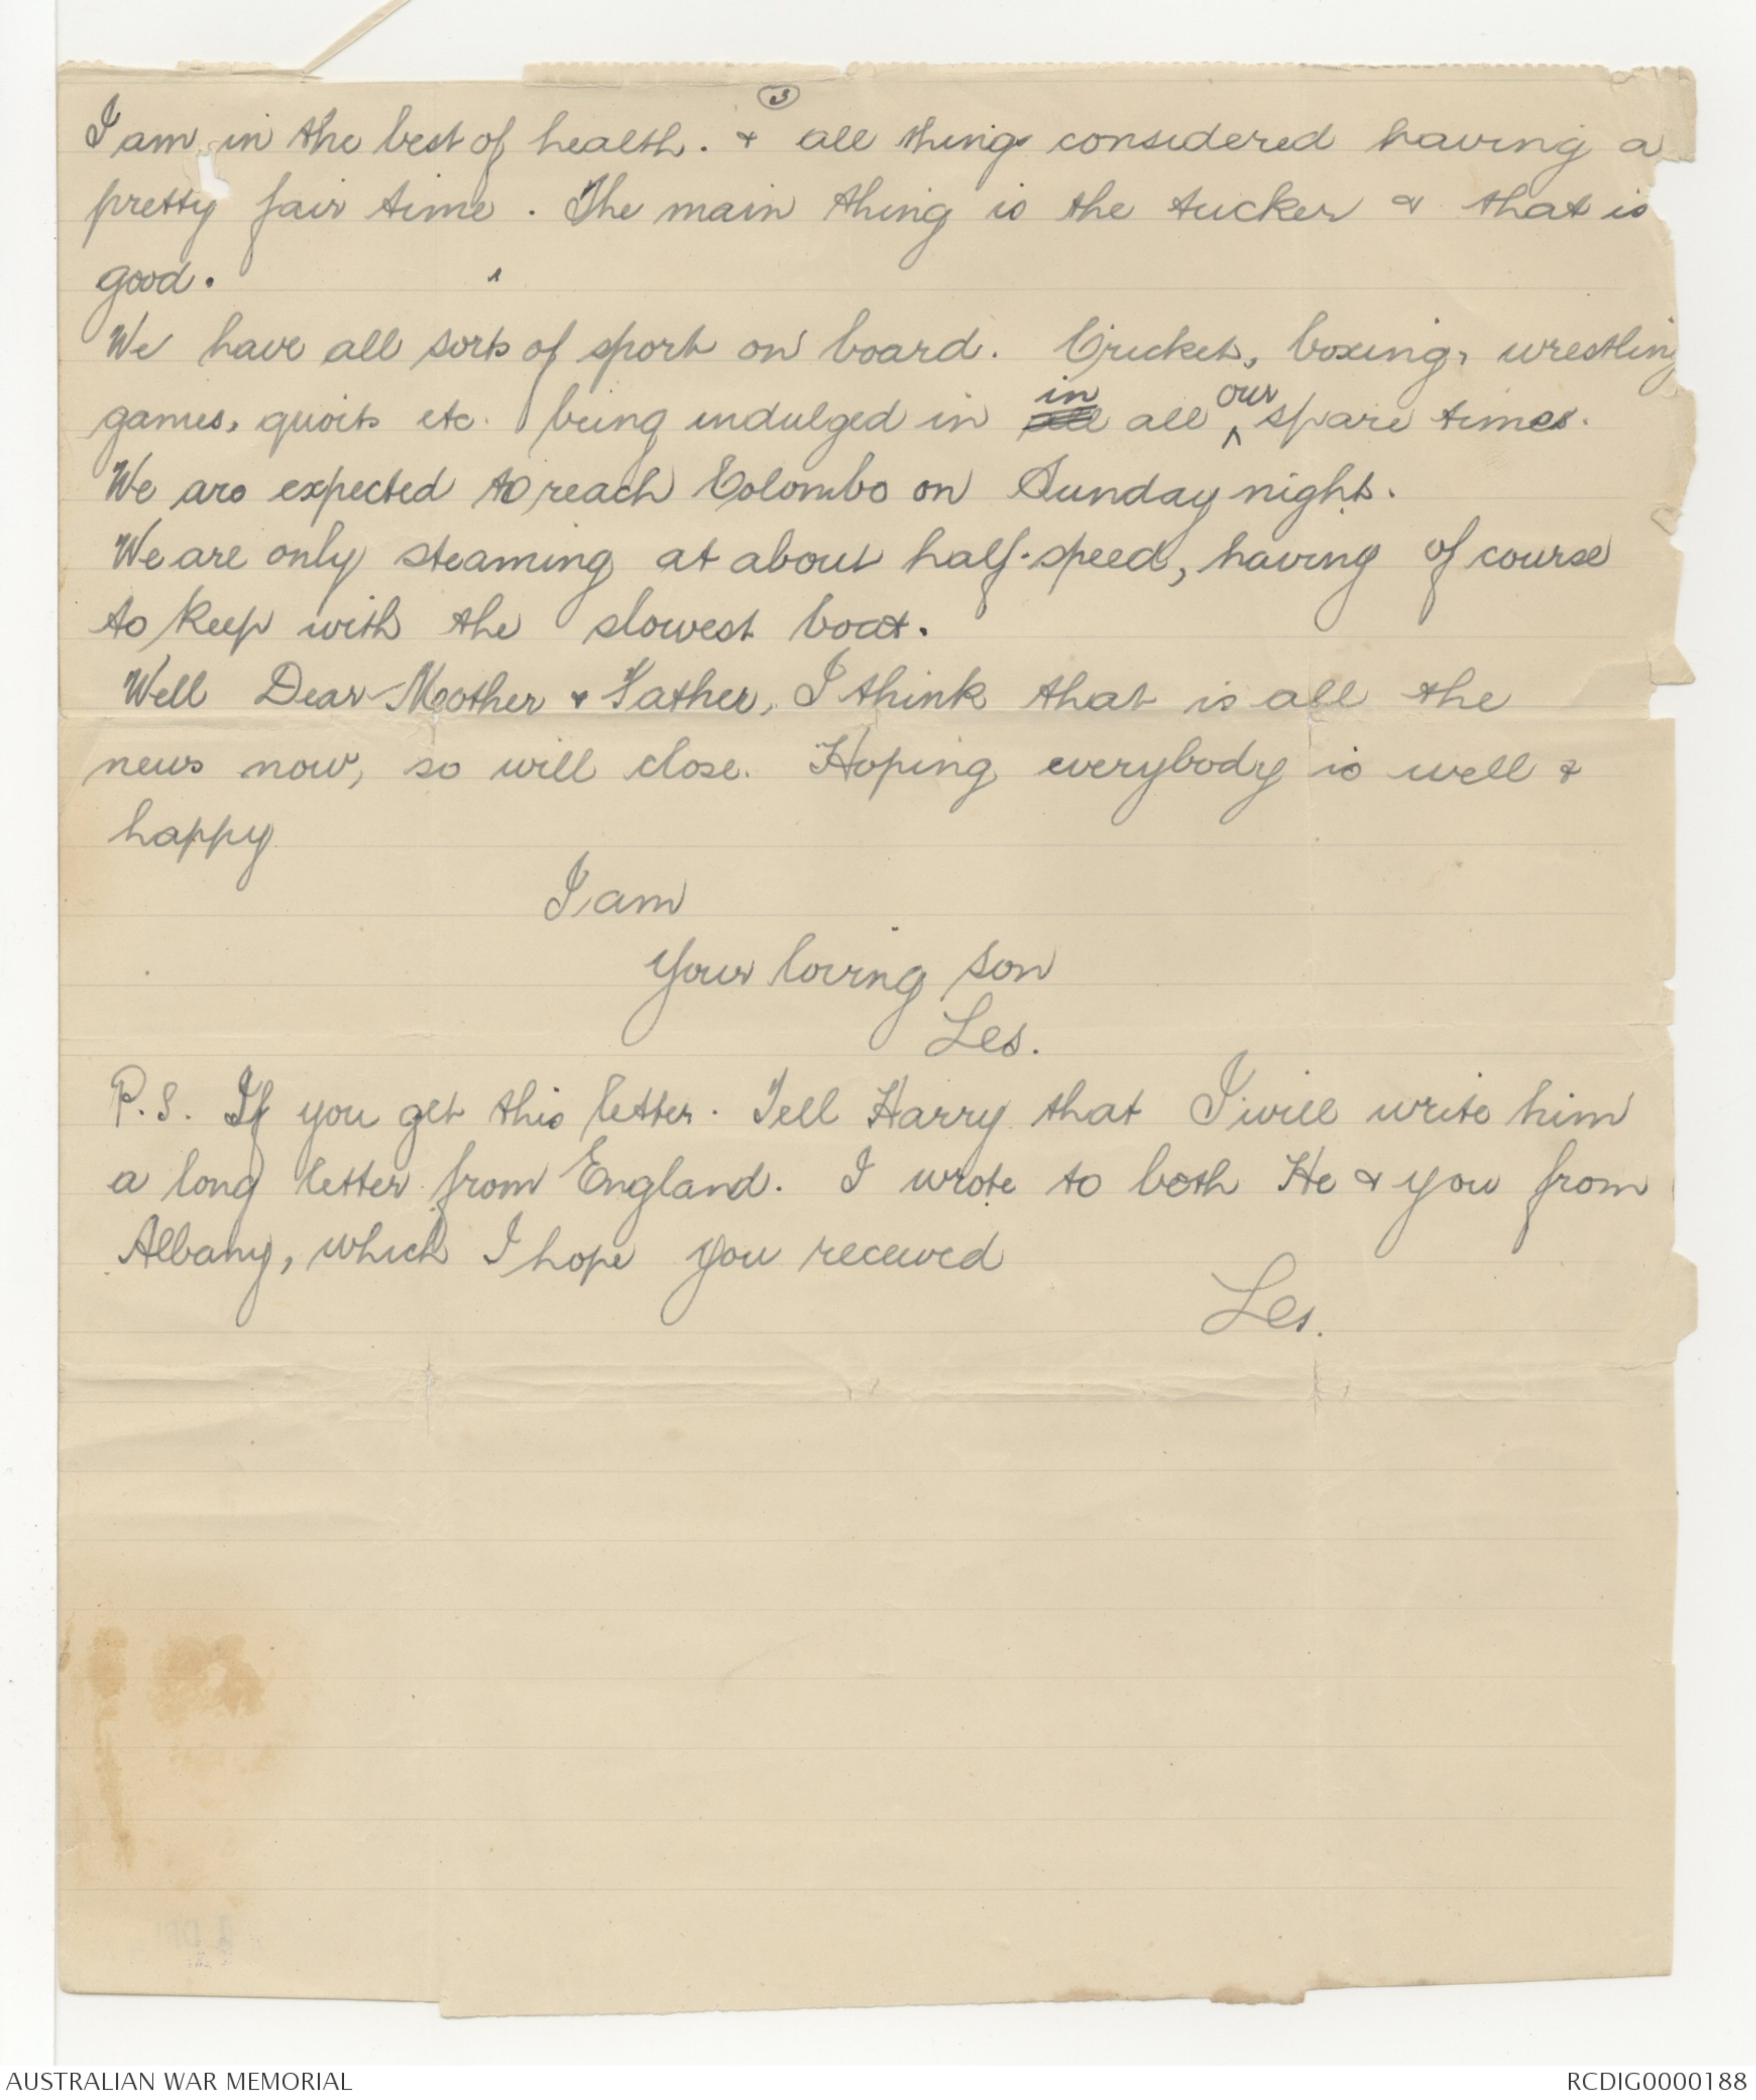 3
I am in the best of health. & all things considered having a
pretty fair time. The main thing is the tucker & that is
good.
We have all sorts of sport on board. Cricket, boxing, wrestling
games, quoits etc. being indulged in in all our spare times.
We are expected to reach Colombo on Sunday night.
We are only steaming at about half-speed, having of course
to keep with the slowest boat.
Well Dear Mother & Father, I think that is all the
news now, so will close. Hoping everybody is well &
happy
I am
Your loving son
Les.
P.S. If you get this letter. Tell Harry that I will write him
a long letter from England. I wrote to both He & you from
Albany, which I hope you received
Les.
AUSTRALIAN WAR MEMORIAL
RCDIG0000188